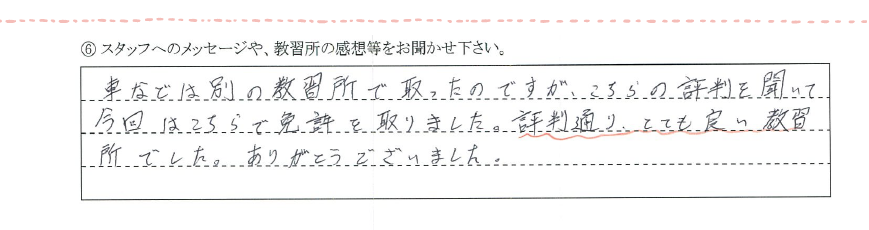 ⑥ スタッフへのメッセージや、教習所の感想等をお聞かせ下さい。
車などは別の教習所で取ったのですが、こちらの評判を聞いて
今回はこちらで免許を取りました。評判通り、とても良い教習
所でした。ありがとうございました。